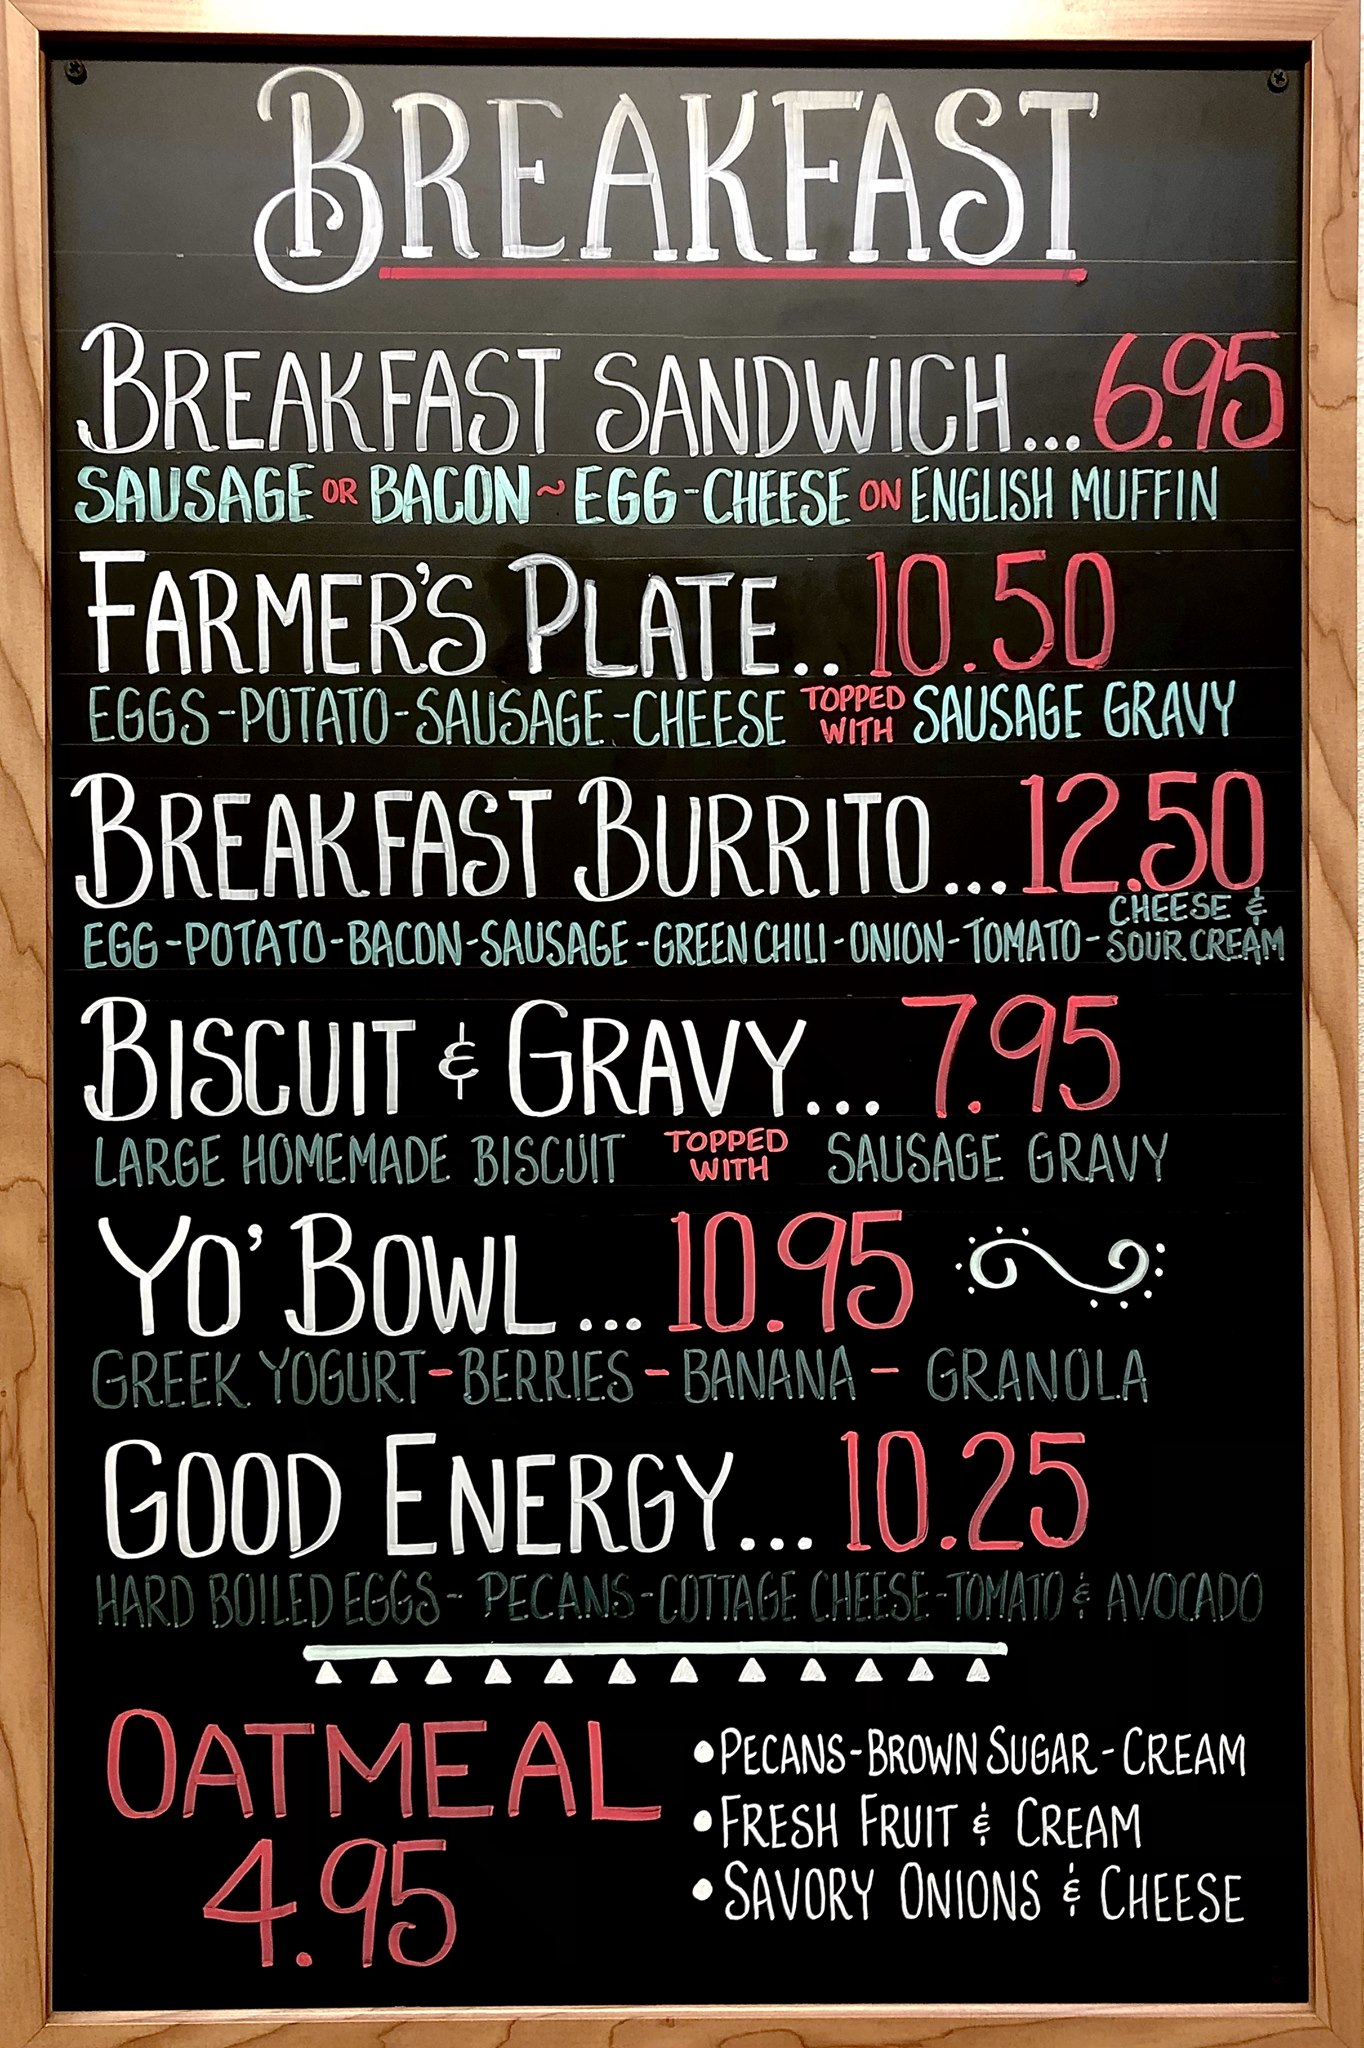 BREAKFAST
BREAKFAST SANDWICH... 6.95
SAUSAGE OR BACON ~ EGG-CHEESE ON ENGLISH MUFFIN
FARMER'S PLATE.. 10.50
EGGS-POTATO-SAUSAGE-CHEESE TOPPED WITH SAUSAGE GRAVY
BREAKFAST BURRITO... 12.50
EGG-POTATO-BACON-SAUSAGE-GREEN CHILI-ONION-TOMATO- CHEESE & SOUR CREAM
BISCUIT & GRAVY... 7.95
LARGE HOMEMADE BISCUIT TOPPED WITH SAUSAGE GRAVY
YO' BOWL... 10.95
GREEK YOGURT-BERRIES-BANANA- GRANOLA
GOOD ENERGY... 10.25
HARD BOILED EGGS- PECANS-COTTAGE CHEESE-TOMATO & AVOCADO
OATMEAL
4.95
•PECANS-BROWN SUGAR-CREAM
•FRESH FRUIT & CREAM
•SAVORY ONIONS & CHEESE